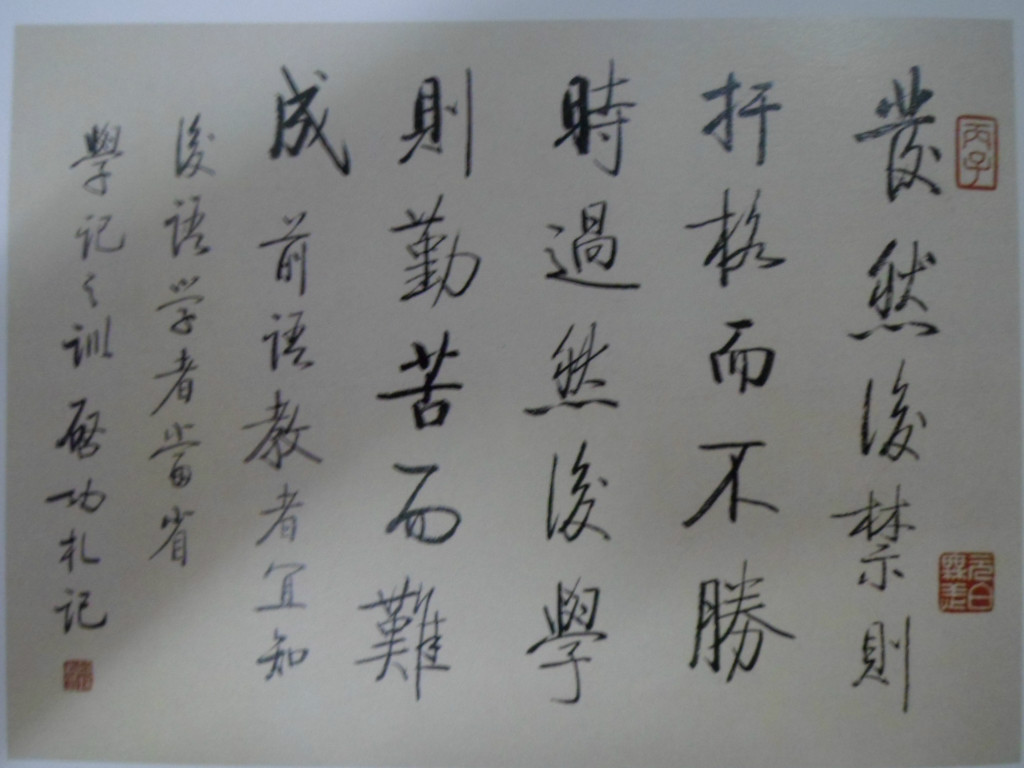 丙子
發然後禁則
扞格而不勝
時過然後學
則勤苦而難
成 前語教者宜知
後語学者當省
學記之訓 啓功札記
元白